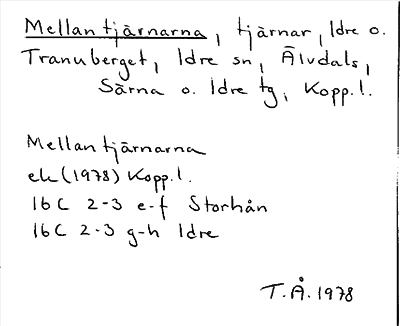 Mellantjärnarna, tjärnar, Idre o.
Tranuberget, Idre sn, Älvdals,
Särna o. Idre tg, Kopp.l.
Mellantjärnarna
ek (1978) Kopp.l.
16C 2-3 e-f Storhån
16C 2-3 g-h Idre
T.Å. 1978